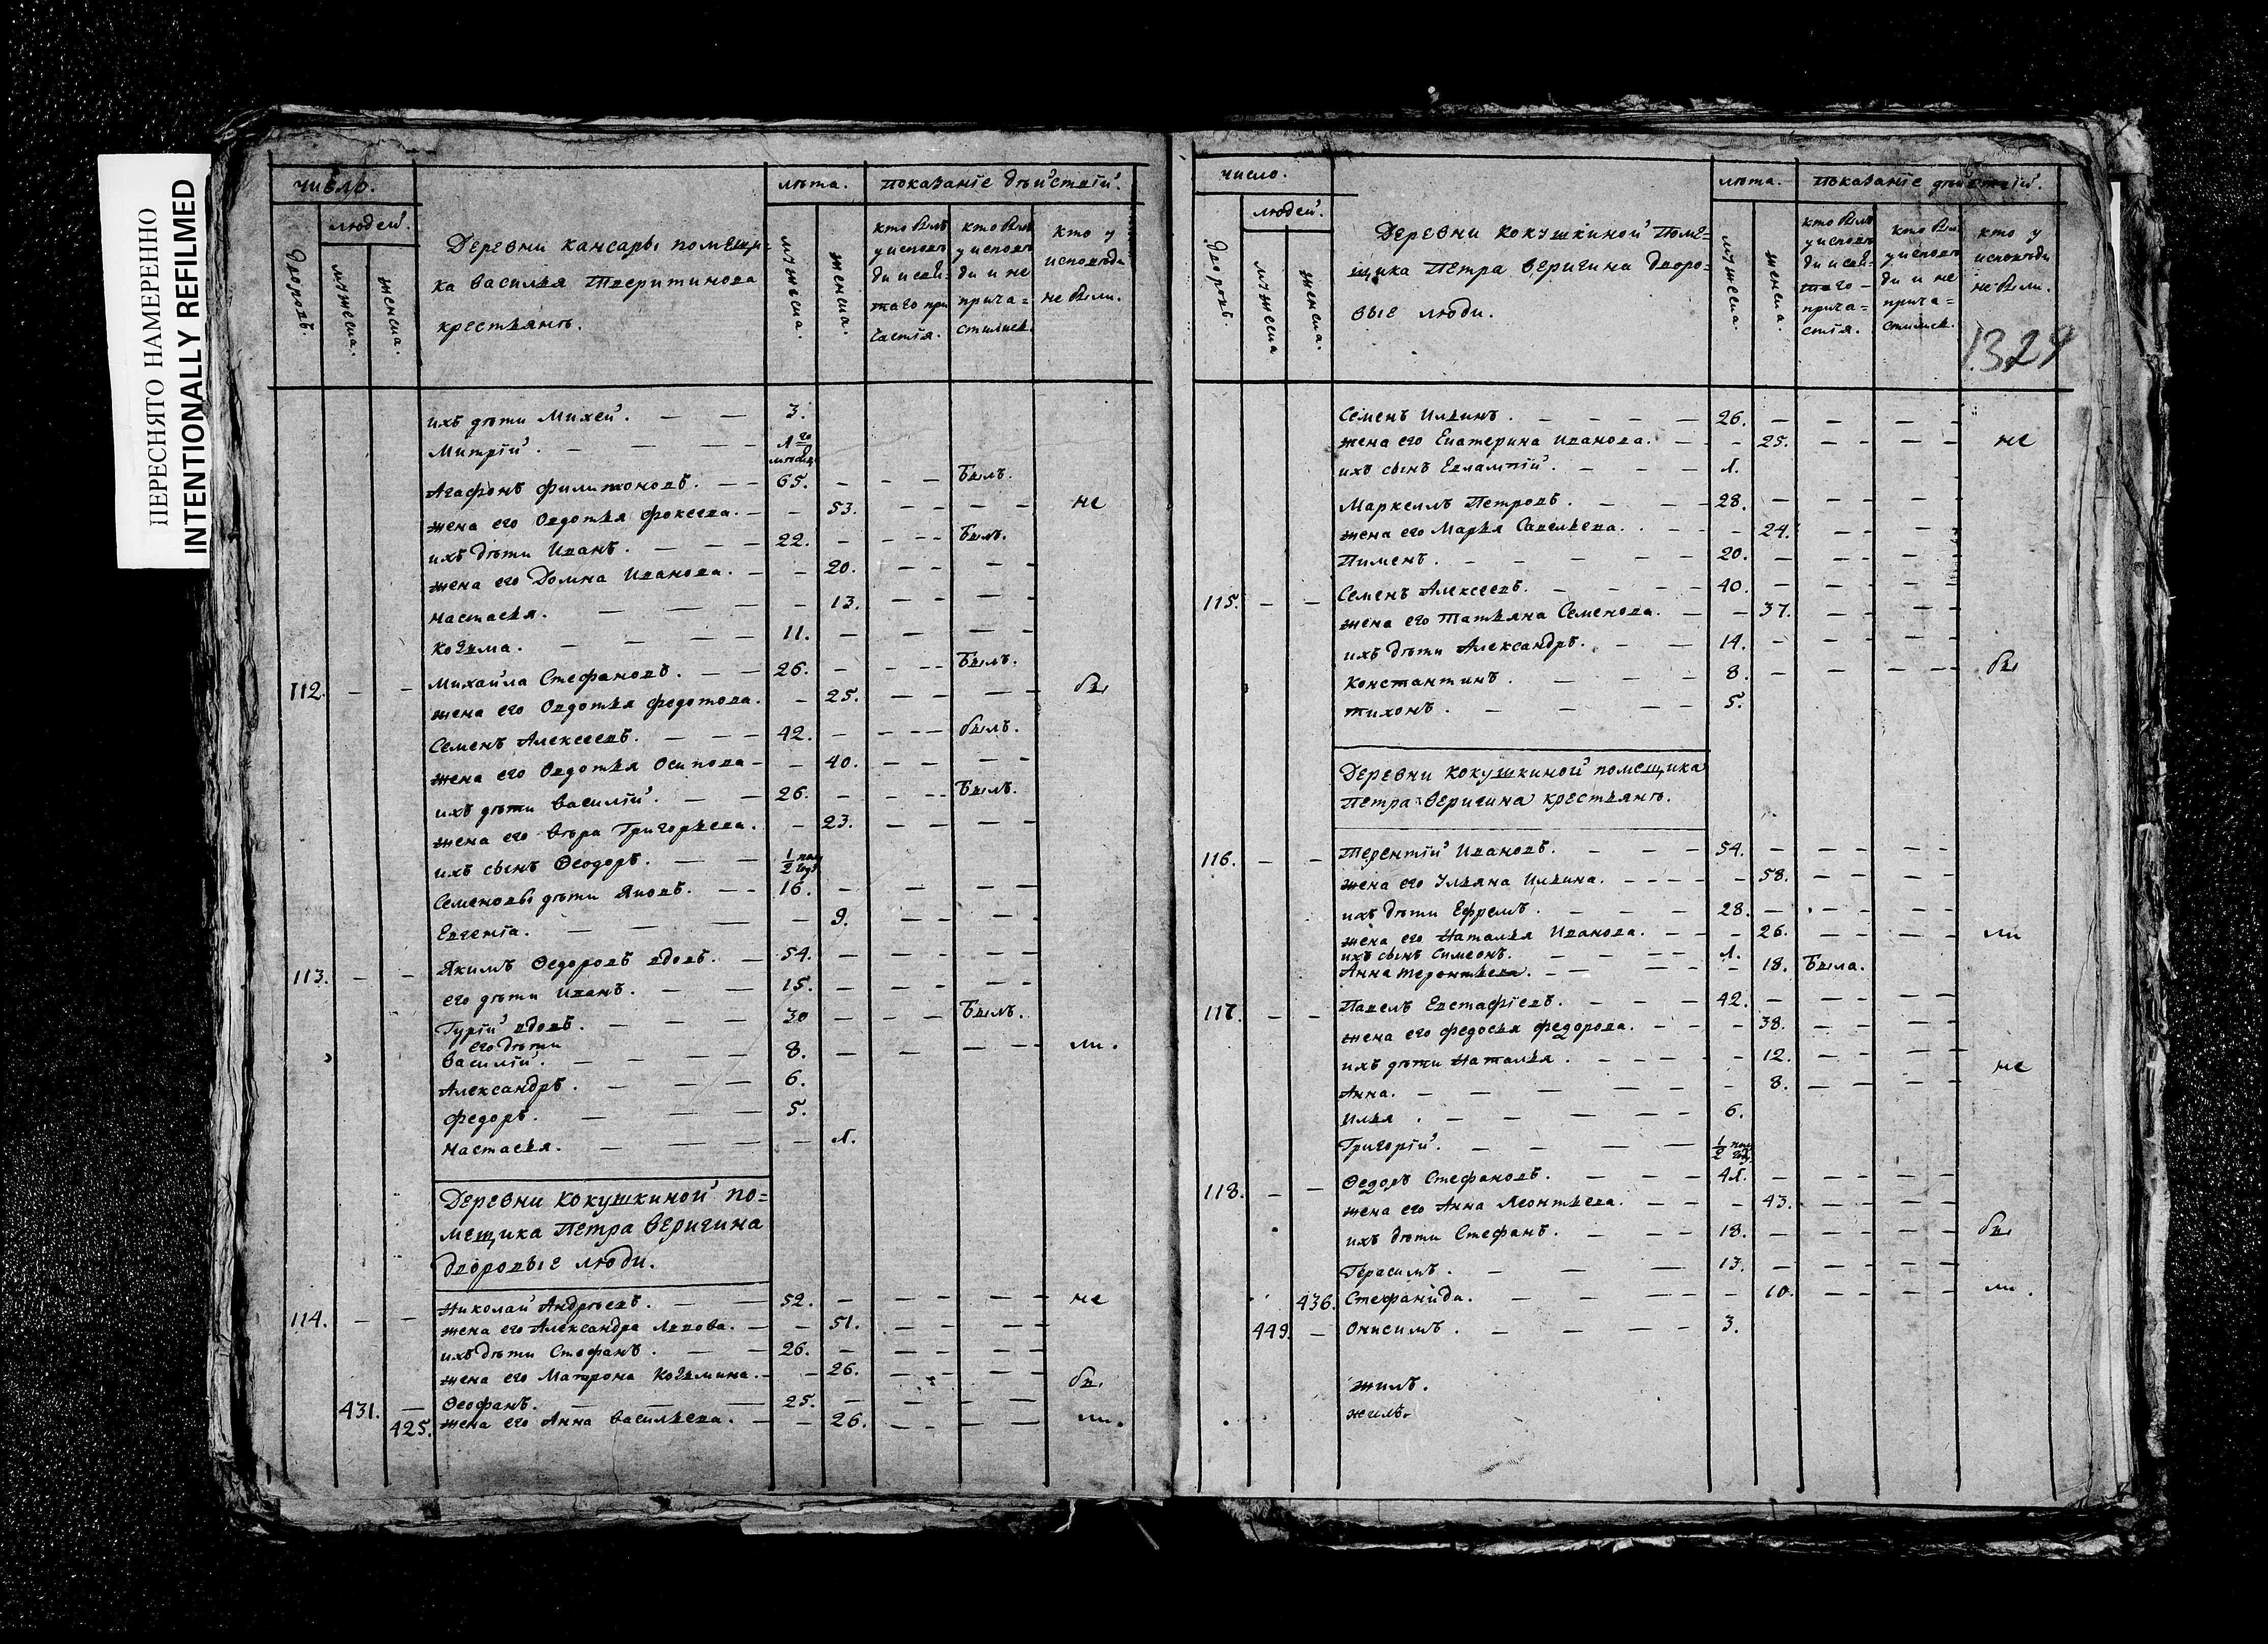 ПЕРЕСНЯТО НАМЕРЕННО
INTENTIONALLY REFILMED
число.
людей.
дворовъ.
мужеска.
женска.
Деревни Кансары помещи-
ка Василья Тверитинова
крестьянъ.
лѣта.
мужеска.
женска.
показанїе дѣйствїй.
кто былъ
у исповѣ
ди и свя-
таго при
частїя.
кто былъ
у исповѣ
ди и не
прича=
стились.
кто у
исповѣди
не были.
ихъ дѣти Михей. — — 3.
Митрїй. — — — 1 го
месяца
Агафонъ Филимоновъ. — — 65. - - - Былъ.
жена его Овдотья Фокеева. — - 53. - - - - не
ихъ дѣти Иванъ. — — 22. - - - - Былъ.
жена его Домна Иванова. — - 20. - - - -
Настасья. — — — - 13. - - - -
Козма. — — — 11. - - - -
112. - - Михайла Стефановъ. — — 26. - - - - Былъ.
жена его Овдотья Федотова. - 25. - - - - бы
Семенъ Алексеевъ. — — — 42. - - - - былъ.
жена его Овдотья Осипова - - 40. - - - -
ихъ дѣти Василїй. — — 26. - - - - Былъ.
жена его Вѣра Григорьева. - 23. - - - -
ихъ сынъ Ѳеодоръ. — — 1/2 пол
годъ
Семеновы дѣти Яковъ. - - 16. - - - -
Евгенїа. — — — - 9. - - - -
113. - - Якимъ Ѳедоровъ вдовъ. — 54. - - - - -
его дѣти Иванъ. — — 15. - - - - -
Гурїй вдовъ. — — — 30 - - - Былъ.
его дѣти
Василїй. — — — 8. - - - - - ли.
Александръ. — — — 6.
Федоръ. — — — 5.
Настасья. — — — - 1.
Деревни Кокушкиной по=
мещика Петра Веригина
дворовые люди.
114. - - Николай Андреевъ. — — 52. - - - - - не
жена его Александра Львова. — - 51. - - - -
ихъ дѣти Стефанъ. — — 26. - - - - -
жена его Матрона Козмина. - - 26. - - - - бы
431. - Ѳеофанъ. — — — 25. - - - - -
425. жена его Анна Васильева. — - 26. - - - - ли.
число.
людей.
дворовъ.
мужеска
женска.
Деревни Кокушкиной Поме-
щика Петра Веригина дворо-
вые люди.
лѣта.
мужеска.
женска.
показанїе дѣйствїй.
кто былъ
у исповѣ
ди и свя-
таго -
прича=
стїя.
кто бы
у исповѣ
ди и не
прича=
стились.
кто у
исповѣди
не были.
1329
Семенъ Ильинъ. — — — 26. - - - - -
жена его Екатерина Иванова. - - 25. - - - - не
ихъ сынъ Евлампїй. — — — 1.
Маркеллъ Петровъ. — — — 28. - - - - -
жена его Марья Савельева. - - - 24. - - - -
Пименъ. — — — — 20. - - - - -
115. - - Семенъ Алексеевъ. — — — 40. - - - - -
жена его Татьяна Семенова. — - 37. - - - -
ихъ дѣти Александръ. — — 14. - - - - -
Константинъ. — — — 8. - - - - - бы
Тихонъ. — — — 5.
Деревни Кокушкиной помещика
Петра Веригина крестьянъ.
116. - - Терентїй Ивановъ. — — — 54. - - - - -
жена его Ульяна Ильина. - - - - - 58. - - - -
ихъ дѣти Ефремъ. — — — 28. - - - - -
жена его Наталья Иванова. — - - 26. - - - - ли
ихъ сынъ Симеонъ. — — — 1.
Анна Терентьева. — — — - 18. Была.
117. - - Павелъ Евстафїевъ. — — — 42. - - - - -
жена его Федосья Федорова. - - - 38. - - - -
ихъ дѣти Наталья. - - - - - 12. - - - - не
Анна. — — — — - 8. - - - -
Илья. — — — — 6.
Григорїй. — — — — 1/2 пол
году
118. - - Ѳедоръ Стефановъ. — — — 41. - - - - -
жена его Анна Леонтьева. — - - 43. - - - -
ихъ дѣти Стефанъ. — — — 18. - - - - - бы
Герасимъ. — — — 13. - - - - -
436. Стефанида. — — — - 10. - - - - ли.
449. - Онисимъ. — — — 3.
жилъ.
жилъ.